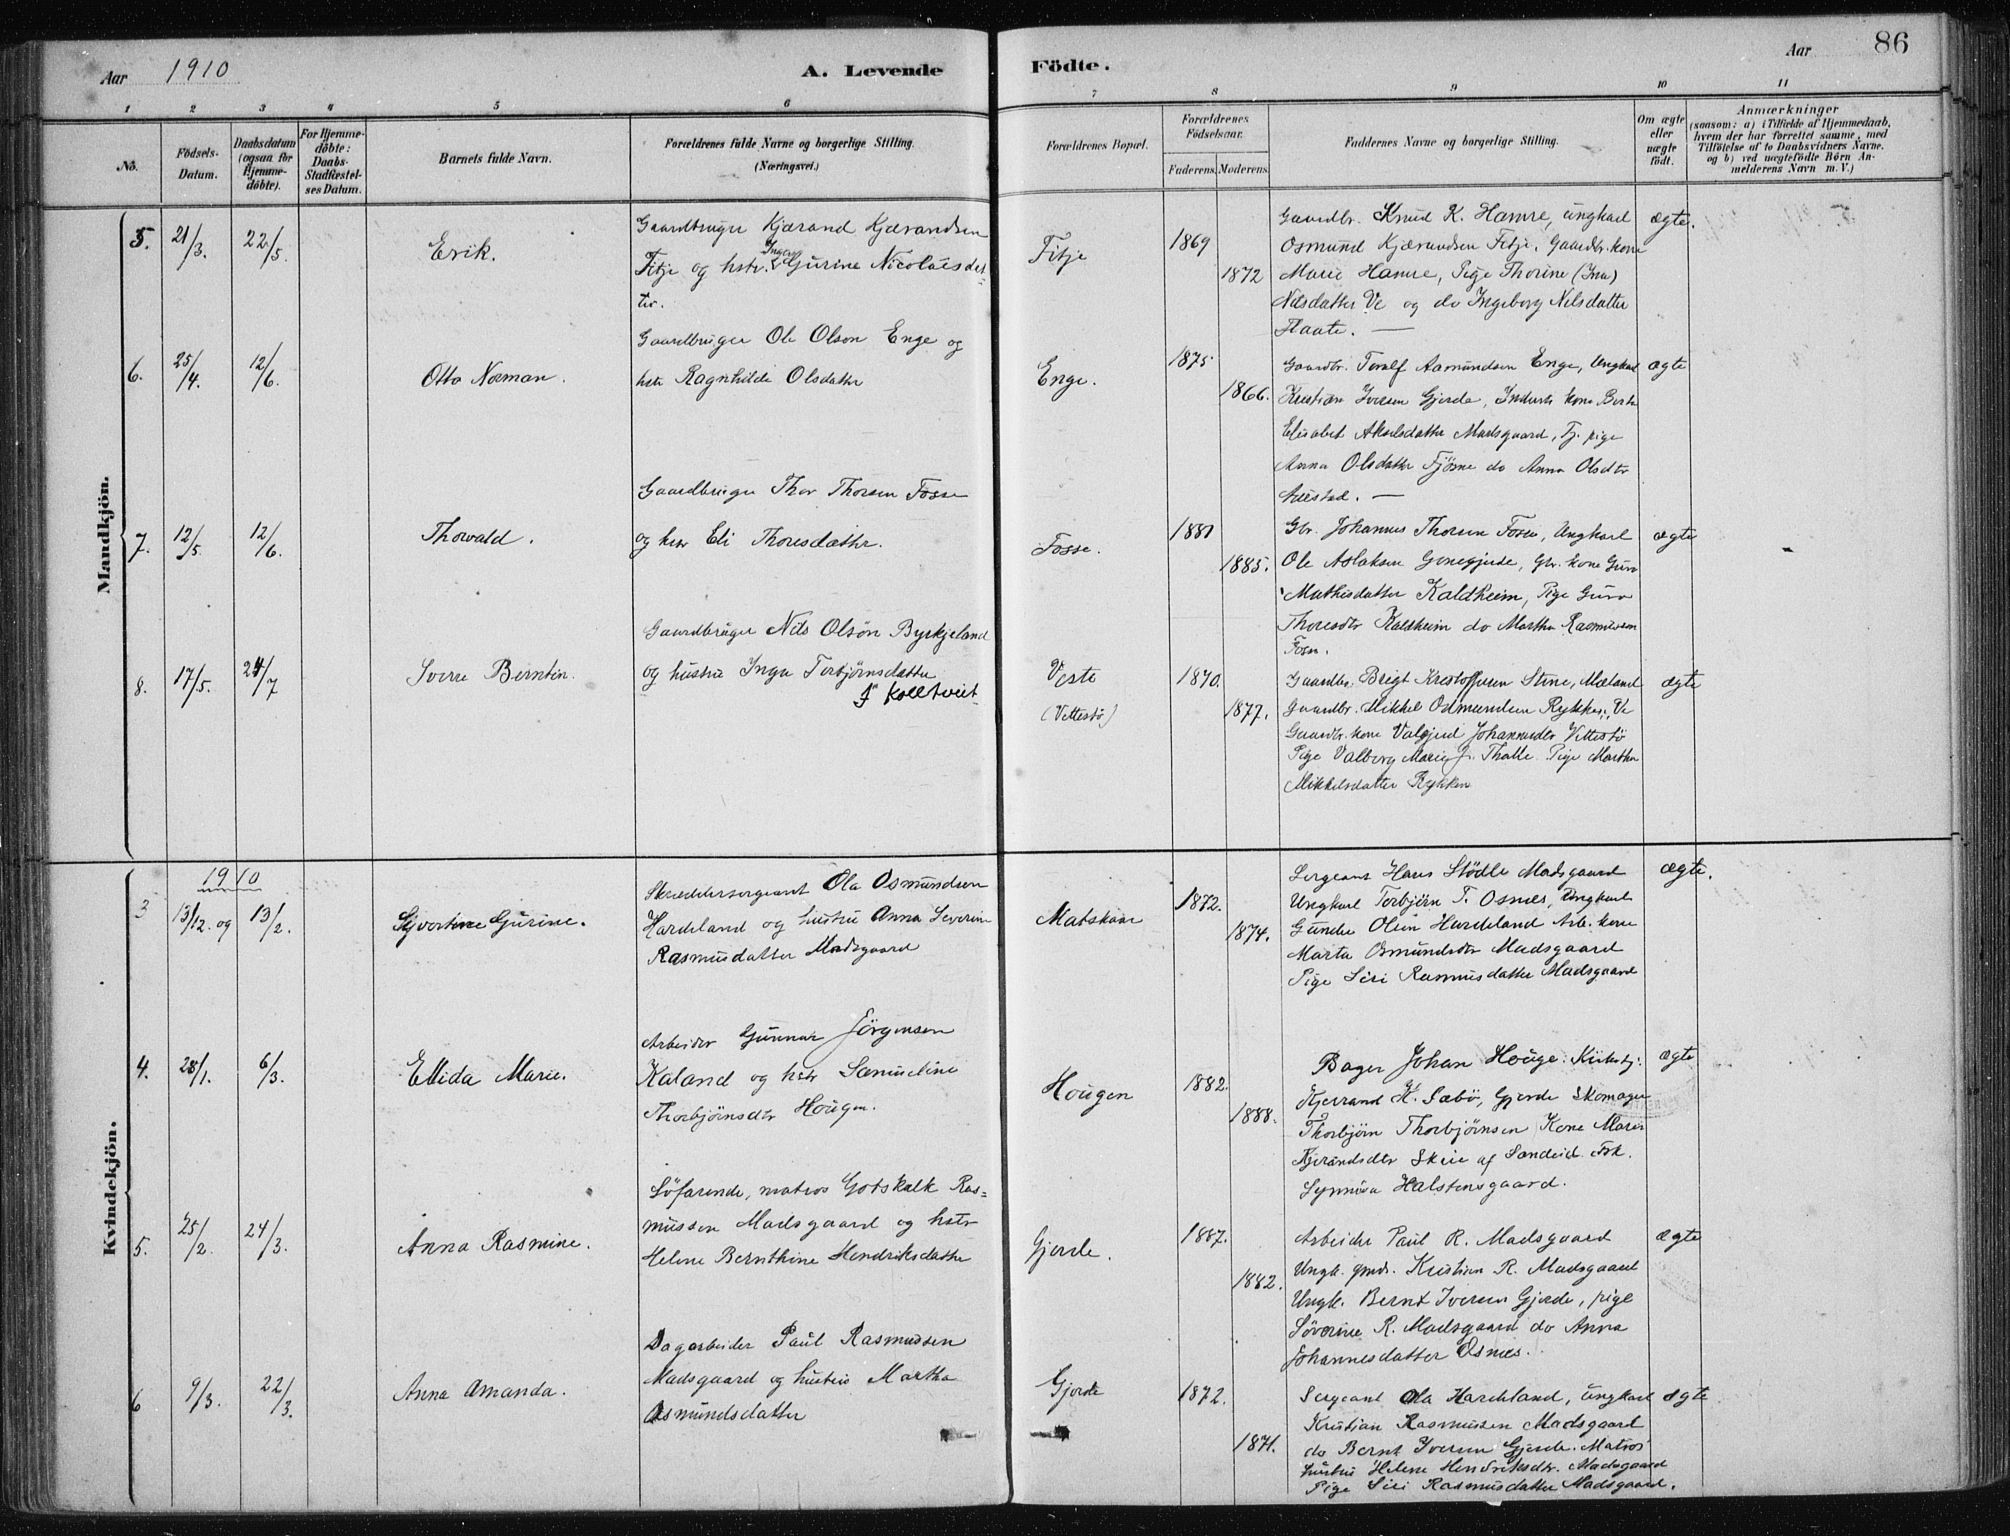 Aar 1910
A. Levende Födte.
Aar 86
1 2 3 4 5 6 7 8 9 10 11
No.
Födsels-Datum.
Daabsdatum (ogsaa for Hjemme-döbte).
For Hjemme-döbte: Daabs-Stadfæstel-ses Datum.
Barnets fulde Navn.
Forældrenes fulde Navne og borgerlige Stilling. (Næringsvei.)
Forældrenes Bopæl.
Forældrenes Födselsaar.
Faderens. Moderens.
Faddernes Navne og borgerlige Stilling.
Om ægte eller uægte födt.
Anmærkninger
(saasom: a) i Tilfælde af Hjemmedaab,
hvem der har forrettet samme, med
Tilföielse af to Daabsvidners Navne.
og b) ved uægtefödte Börn An-
melderens Navn m. V.)
Mandkjön.
5. 21/3. 22/5. Erik.
Gaardbruger Kjærand Kjærandsen
Fitje og hstr. Inger Gurine Nicolaisdat-
ter.
Fitje 1869 1872
Gaardbr. Knud K. Hamre, ungkarl
Osmund Kjærandsen Fitje. Gaardbr. kone
Marie Hamre, Pige Thorine (Ina)
Nilsdatter Ve og do Ingeborg Nilsdatter
Flaate. —
ægte.
6. 25/4. 12/6. Otto Norman.
Gaardbruger Ole Olson Enge og
hstr Ragnhilde Olsdatter
Enge. 1875 1866.
Gaardbr. Toralf Aamundsen Enge, Ungkarl
Kristian Iversen Gjerde, Inderst kone Berte
Elisabet Akselsdatter Madsgaard, Tj. pige
Anna Olsdatter Fjösne do Anna Olsdtr
Aulstad. —
ægte
7. 12/5. 12/6. Thorvald.
Gaardbruger Thor Thorsen Fosse
og hstr Eli Thoresdatter.
Fosse. 1881 1885.
Gbr. Johannes Thorsen Fosse, Ungkarl
Ole Aslaksen Grnegjerde, Gbr. kone Guro
Mathisdatter Kaldheim, Pige Guro
Thoresdtr Kaldheim do Martha Rasmussen
Fosse.
ægte
8. 17/5. 24/7 Sverre Berntin.
Gaardbruger Nils Olsön Byrkjeland
og hustru Inga Torbjørnsdatter
f. Kolltveit
Veste
(Vettestö) 1870. 1877.
Gaardbr. Brigt Kristoffersen Stene, Mæland
Gaardbr. Mikkel Osmundsen Rykken, Ve
Gaardbr. kone Valgjerd Johannesdtr Vettestö
Pige Valborg Marie J. Thalle. Pige Martha
Mikkelsdatter Rykken
ægte
Kvindekjön.
1910
3 13/12. og 13/2. Sjvortine Gurine.
Skræddersergeant Ola Osmundsen
Hardeland og hustru Anna Severine
Rasmusdatter Madsgaard
Matskaar 1872. 1874.
Sergeant Hans Stödle Madsgaard
Ungkarl Torbjörn T. Osnes, Ungkarl
Gunder Olsen Hardeland Arb. kone
Marta Osmundsdtr Madsgaard
Pige Siri Rasmusdatter Madsgaard
ægte.
4. 28/1. 6/3. Ellida Marie.
Arbeider Gunnar Jörgensen
Kaland og hstr Samueline
Thorbjörnsdtr Hougen.
Hougen 1882. 1888.
Bager Johan Houge: Kirkebj:
Kjerrand H. Sæbö, Gjerde Skomager
Thorbjörn Thorbjörnsen Kone Maria
Kjerandsdtr Skeie af Sandeid. Frk.
Synnöva Halstensgaard.
ægte
5. 25/2. 24/3. Anna Rasmine.
Söfarende, matros Gotskalk Ras-
mussen Madsgaard og hstr
Helene Bernthine Hendriksdatter
Gjerde. 1887. 1882.
Arbeider Paul R. Madsgaard
Ungk. gmds. Kristian R. Madsgaard
Ungk. Bernt Iversen Gjerde, pige
Söverine R. Madsgaard do Anna
Johannesdatter Osnes.
ægte
6 9/3. 22/3. Anna Amanda.
Dagarbeider Paul Rasmussen
Madsgaard og hustru Martha
Osmundsdatter
Gjerde 1872. 1871.
Sergeant Ola Hardeland, ungkarl
Kristian Rasmussen Madsgaard
do Bernt Iversen Gjerde. Matros
hustru Helene Hendriksdtr. Madsgaard
Pige Siri Rasmusdatter Madsgaard.
ægte